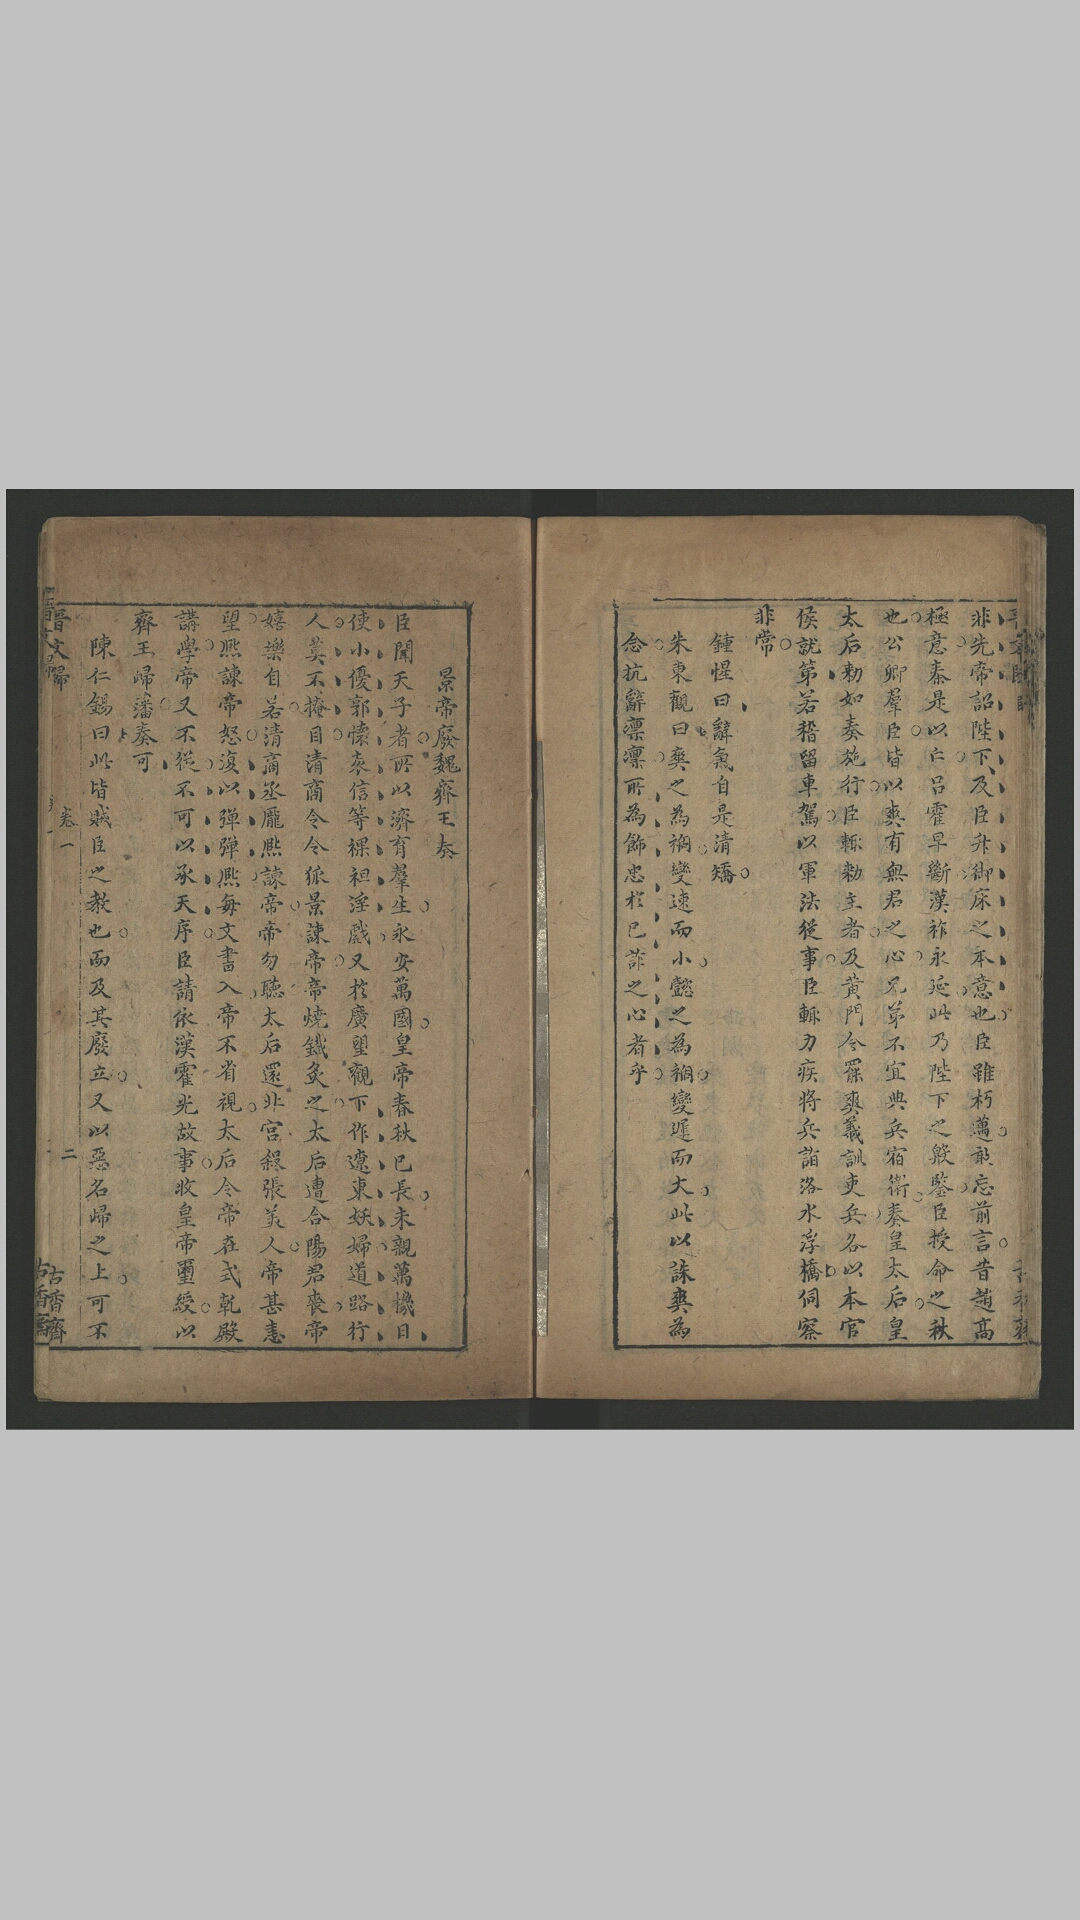 非先帝詔陛下及臣升御床之本意也臣雖朽邁敢忘前言昔趙高
極意秦是以亡呂霍早斷漢祚永延此乃陛下之殷鑒臣授命之秋
也公卿羣臣皆以爽有無君之心兄弟不宜典兵宿衛奏皇太后皇
太后勅如奏施行臣輒勅主者及黃門令罷爽羲訓吏兵各以本官
侯就第若稽留車駕以軍法從事臣輒力疾將兵詣洛水浮橋伺察
非常
鍾惺曰辭氣自是清矯
朱東觀曰爽之為禍變速而小懿之為禍變遲而大此以誅爽為
念抗辭凛凛所為飾忠於已詐之心者乎
景帝廢魏齊王奏
臣聞天子者所以濟育羣生永安萬國皇帝春秋已長未親萬機日
使小優郭懷袁信等裸袒淫戲又於廣望觀下作遼東妖婦道路行
人莫不掩目清商令令狐景諫帝帝燒鐵灸之太后遭合陽君喪帝
嬉樂自若清商丞龐熙諫帝帝勿聽太后還北宮殺張美人帝甚恚
望熙諫帝怒復以彈彈熙每文書入帝不省視太后令帝在式乾殿
講學帝又不從不可以承天序臣請依漢霍光故事收皇帝璽綬以
齊王歸藩奏可
陳仁錫曰此皆賊臣之教也而及其廢立又以惡名歸之上可不
晉文歸
卷一
二
古香齋